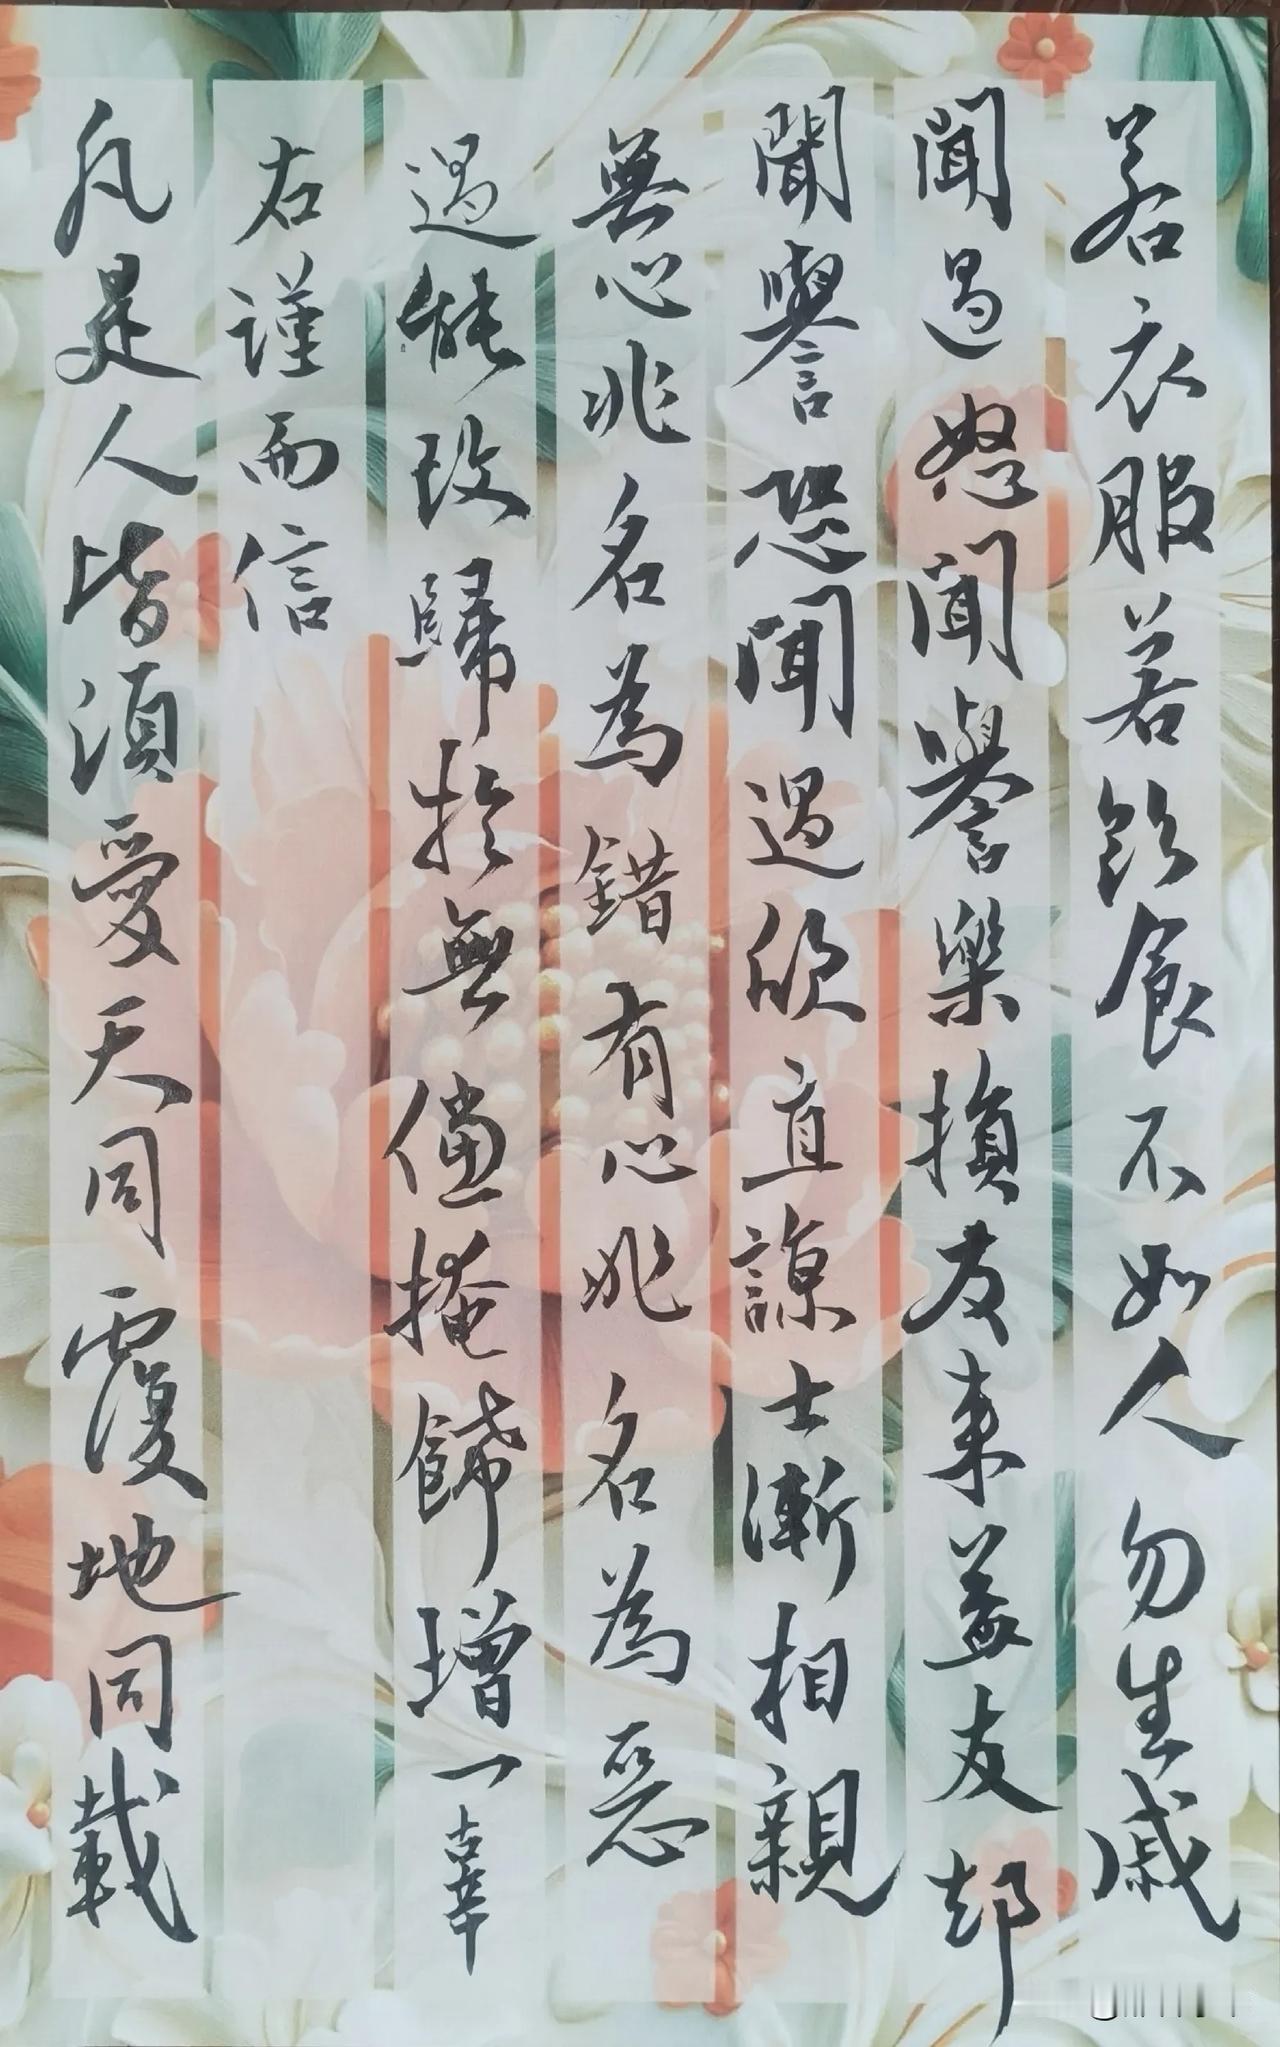 若衣服若飲食不如人勿生戚
聞過怒聞譽樂損友來益友却
聞譽恐聞過欣直諒士漸相親
無心非名為錯有心非名為惡
過能改歸於無儻掩飾增一辜
右謹而信
凡是人皆須愛天同覆地同載